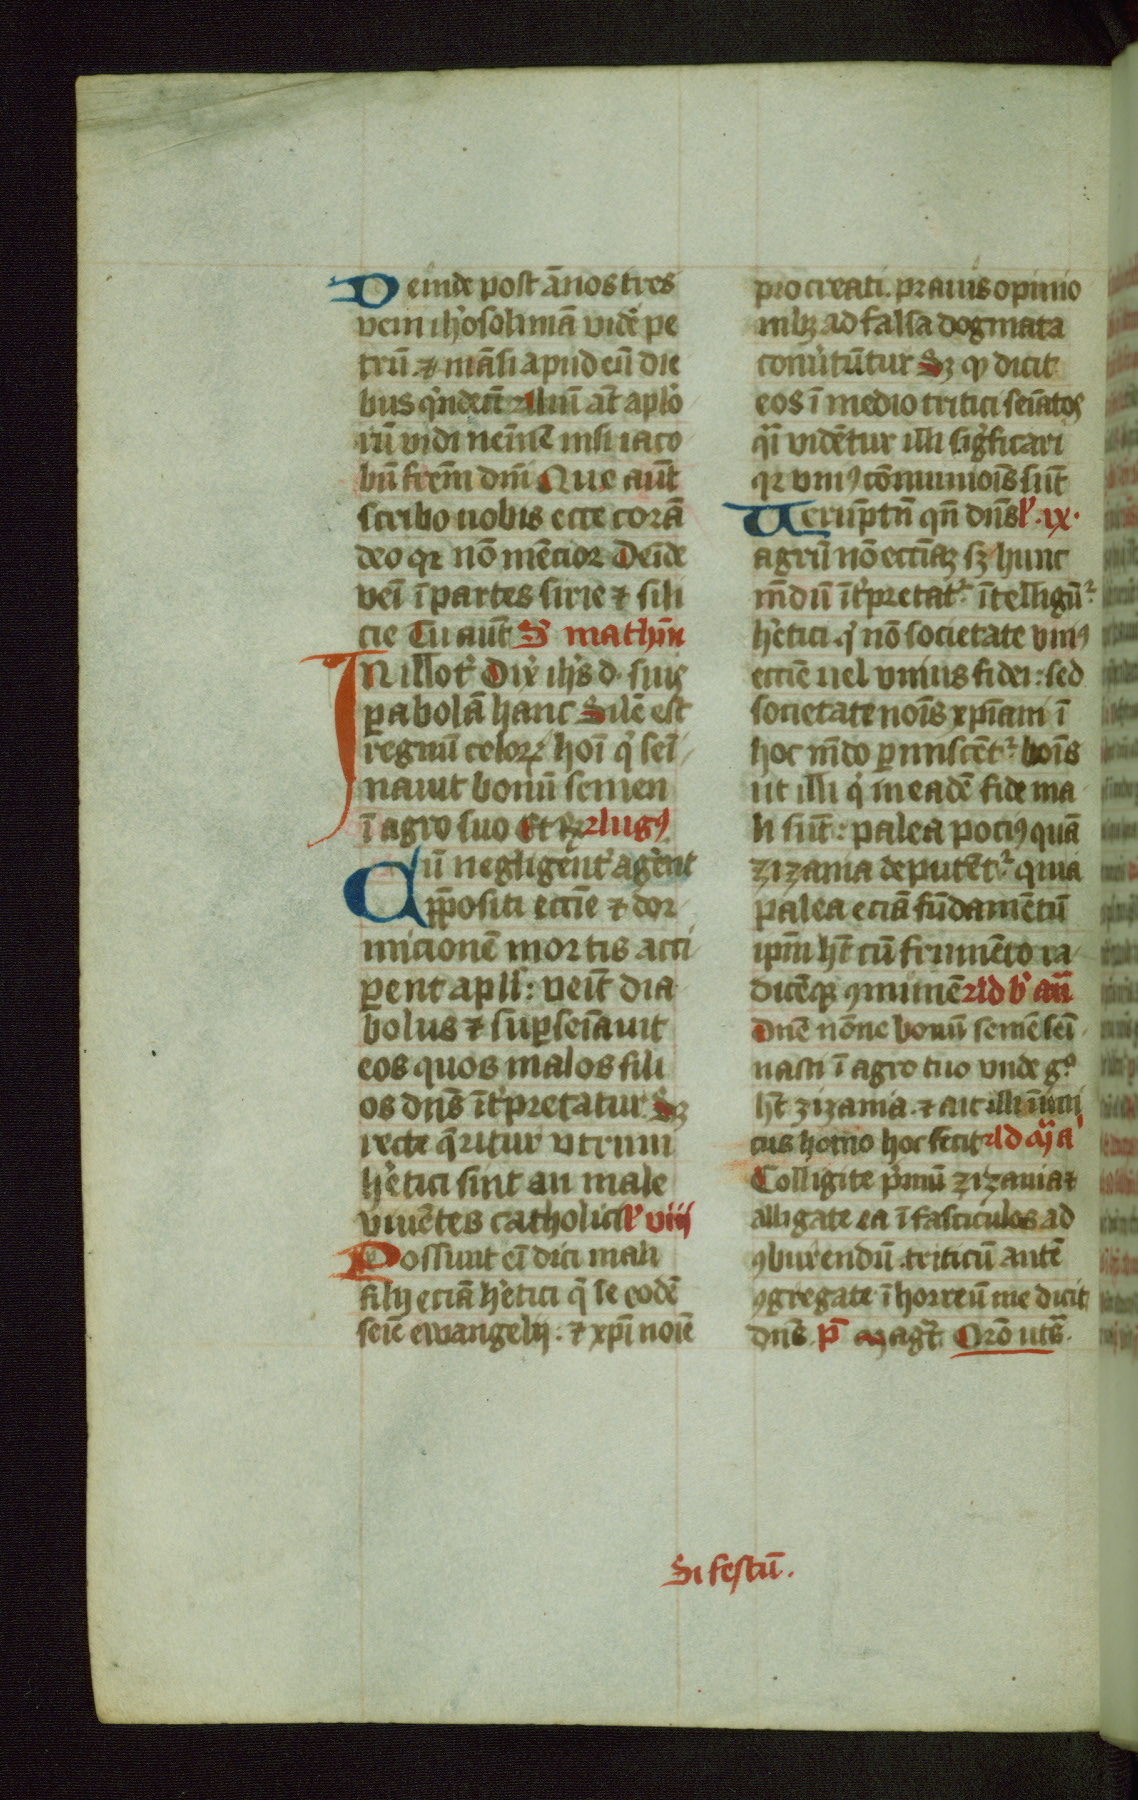 Deinde post ānos tres
veni ih'osolimā vide' pe
trū ⁊ māsi apud eū die
bus q'ndecī Aliū āt ap'lo
rū vidi nemīe nisi iaco
bū frēm dm̄ Que aūt
scribo uobis ecce corā
deo qr nō mēcior Deīde
venī ī partes sirie ⁊ sili
cie Tu aūt S' mathm̄
IN illo t' Dix' ih's d. suis
pabolā hanc Sil'e est
regnū celor' hoī q' semī
nauit bonū semen
ī agro suo Et R' Augꝰ
Cū negligent' agerēt
p̄positi eccīe ⁊ dor
micionē mortis acci
perent apl'i: venīt dia
bolus ⁊ sup semīauit
eos quos malos fili
os dn̄s īt'pretatur Sꝫ
recte q̄ritur utrum
h'etici sint an male
viuētes catholici R' viij
Possunt eī dici mali
filij eciā h'etici q' se eodē
semīe ewangelij: ⁊ xp̄i noīe
procreati. prauis opinio
nibꝫ ad falsa dogmata
conu'tūtur Sꝫ qd' dicit
eos ī medio tritici semīatos
q̄i videntur illi sig'ficari
qr uniꝰ cōmunioīs sūt
Verūptn̄ qn̄ dn̄s R' ix.
agrū nō eccīaꝫ sꝫ hunc
mūdū īt'pretat' ītelligūt'
h'etici q' nō societate uniꝰ
eccīe uel unius fidei: sed
societate noīs xp̄iani ī
hoc mūdo p̄miscēt' bonīs
ut illi q' in eadē fide ma
li sūt: palea pociꝰ quā
zizania deputēt' quia
palea eciā fūdamētū
ipm̄ h't cū frumēto ra
dicēqꝫ ꝯmunē Ad b' an̄
Dn̄e nōne bonū semē semī
nasti ī agro tuo unde g°
h't zizania. ⁊ ait illi īimi
cus homo hoc fecit Ad mḡ a'
Colligite p'mū zizania ⁊
alligate ea ī fasciculos ad
ꝯburendū. triticū autē
ꝯgregate ī horreū meū dicit
dn̄s. p̄ Magt. Orō uts'.
Si festū.